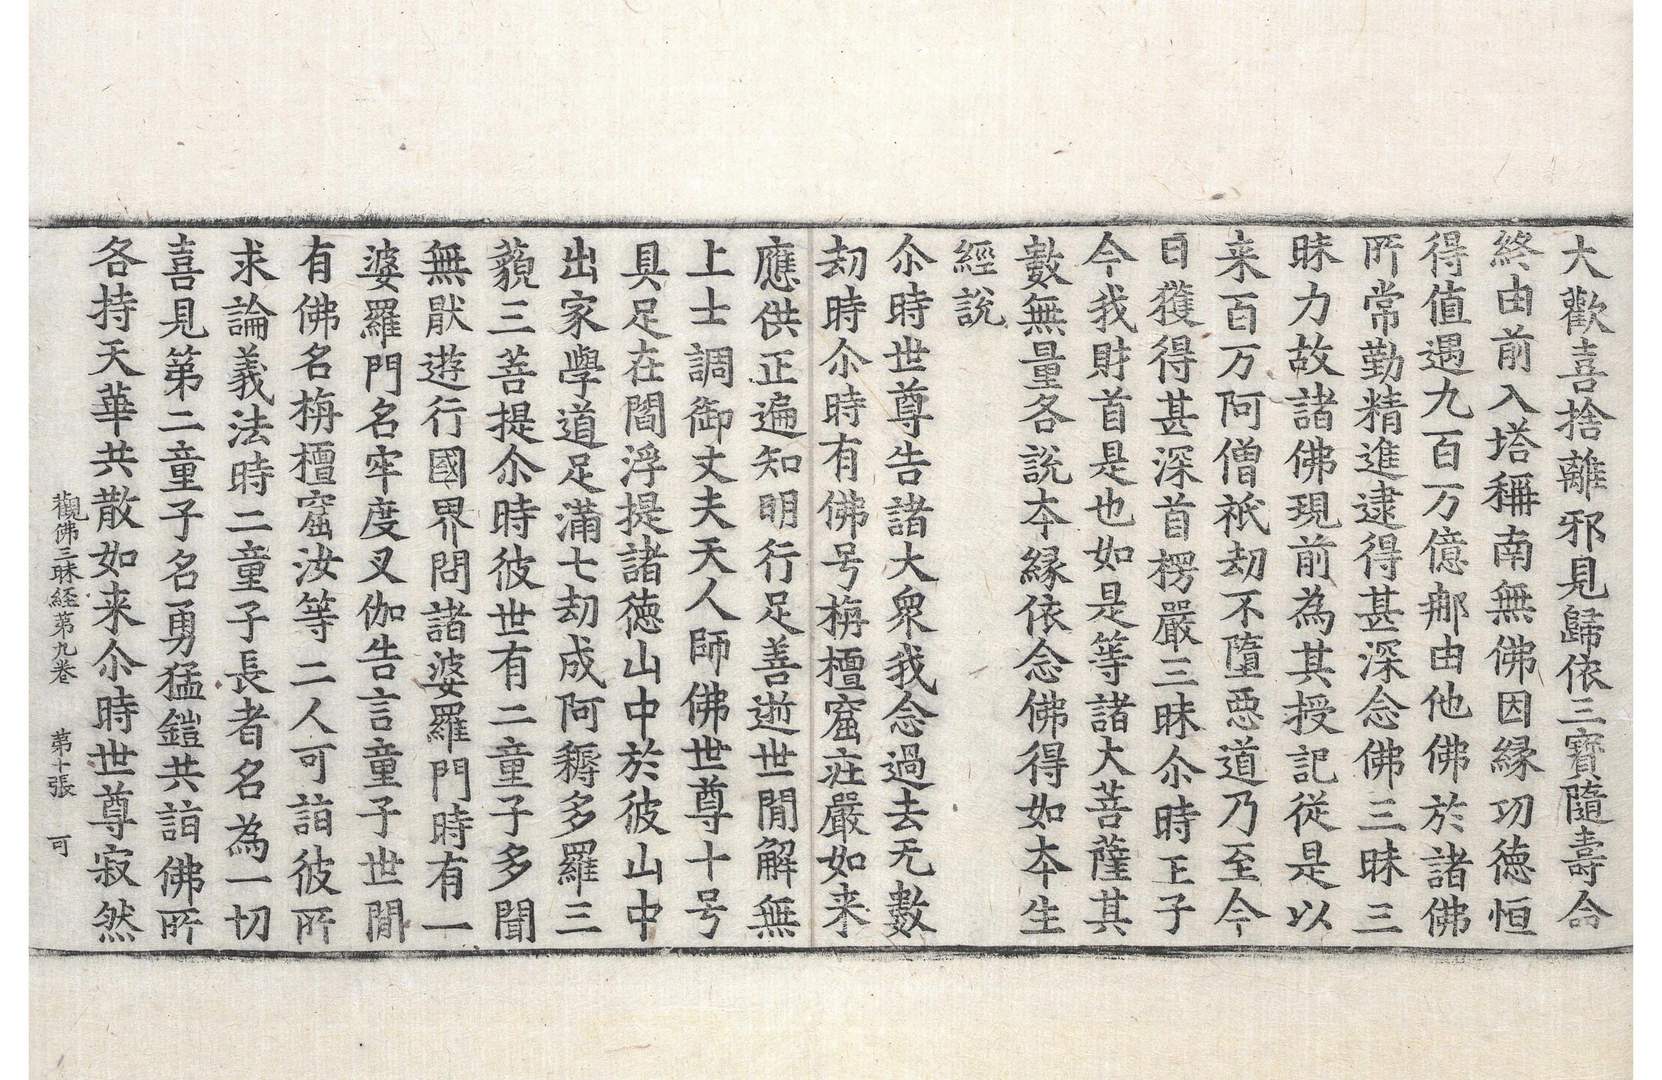 大歡喜捨離邪見歸依三寶隨壽命
終由前入塔稱南無佛因緣功德恒
得值遇九百万億那由他佛於諸佛
所常勤精進逮得甚深念佛三昧三
昧力故諸佛現前為其授記從是以
来百万阿僧祇劫不墮惡道乃至今
日獲得甚深首楞嚴三昧尒時王子
今我財首是也如是等諸大菩薩其
數無量各說夲緣依念佛得如夲生
經說
尒時世尊告諸大衆我念過去无數
劫時尒時有佛号栴檀窟莊嚴如来
應供正遍知明行足善逝世間解無
上士調御丈夫天人師佛世尊十号
具足在閻浮提諸德山中於彼山中
出家學道足滿七劫成阿耨多羅三
藐三菩提尒時彼世有二童子多聞
無猒遊行國界問諸婆羅門時有一
婆羅門名牢度叉伽告言童子世間
有佛名栴檀窟汝等二人可詣彼所
求論義法時二童子長者名為一切
喜見第二童子名勇猛鎧共詣佛所
各持天華共散如来尒時世尊寂然
觀佛三昧経苐九卷 苐十張 可